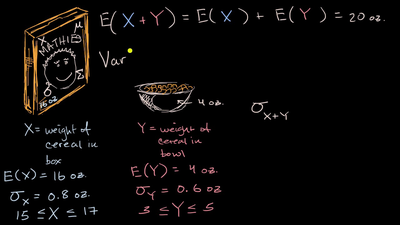 E(X + Y) = E(X) + E(Y) = 20 oz.
MATHIES
μ
σ
Σ
16 oz
Var
4 oz.
σ_{X+Y}
X = weight of
cereal in
box
E(X) = 16 oz.
σ_X = 0.8 oz.
15 ≤ X ≤ 17
Y = weight of
cereal in
bowl
E(Y) = 4 oz.
σ_Y = 0.6 oz
3 ≤ Y ≤ 5